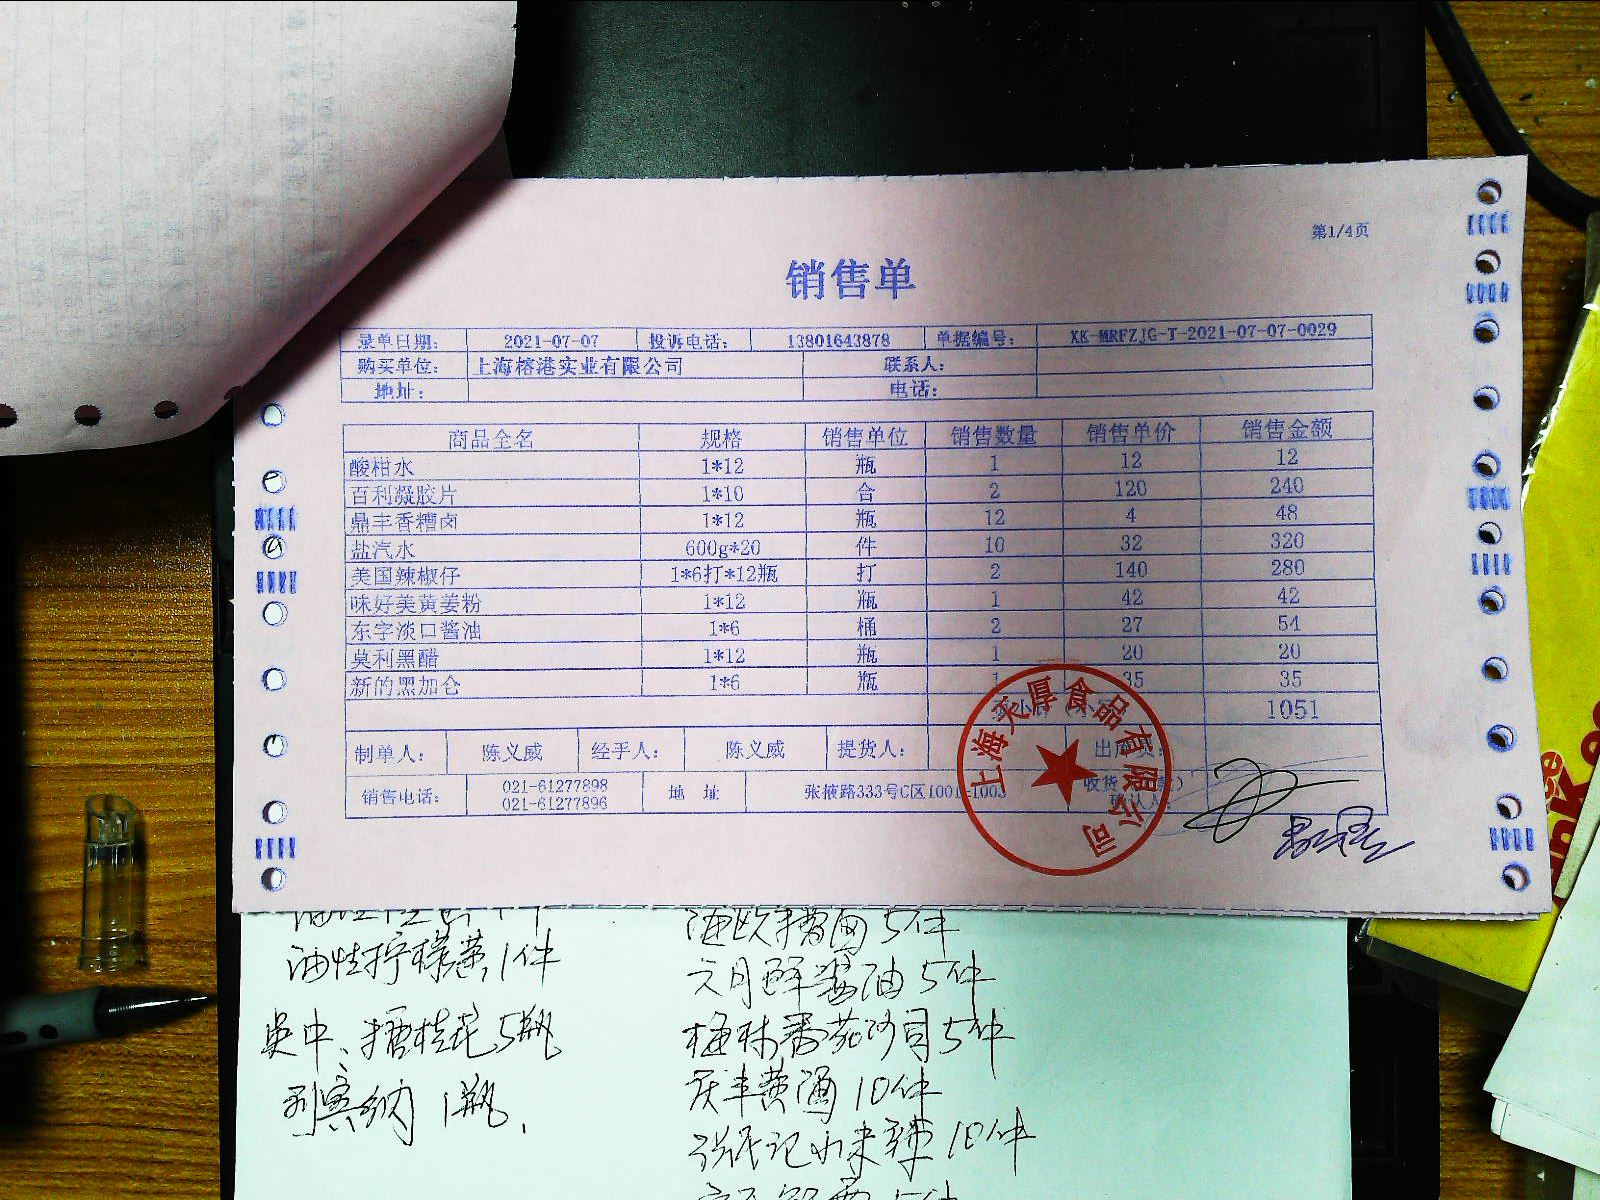 第1/4页
销售单
录单日期： 2021-07-07 投诉电话： 13801643878 单据编号： XK-MRFZJG-T-2021-07-07-0029
购买单位： 上海榕港实业有限公司 联系人：
地址： 电话：
商品全名 规格 销售单位 销售数量 销售单价 销售金额
酸柑水 1*12 瓶 1 12 12
百利凝胶片 1*10 合 2 120 240
鼎丰香糟卤 1*12 瓶 12 4 48
盐汽水 600g*20 件 10 32 320
美国辣椒仔 1*6打*12瓶 打 2 140 280
味好美黄姜粉 1*12 瓶 1 42 42
东字淡口酱油 1*6 桶 2 27 54
莫利黑醋 1*12 瓶 1 20 20
新的黑加仑 1*6 瓶 1 35 35
1051
制单人： 陈义威 经手人： 陈义威 提货人：
销售电话： 021-61277898 地 址 张掖路333号C区1001-1003
021-61277896
上海天厚食品有限公司
油性柠檬黄 1件
吴中、糖桂花 5瓶
利宾纳 1瓶.
5件
六月鲜酱油 5件
梅林番茄沙司 5件
黄酒 10件
10件